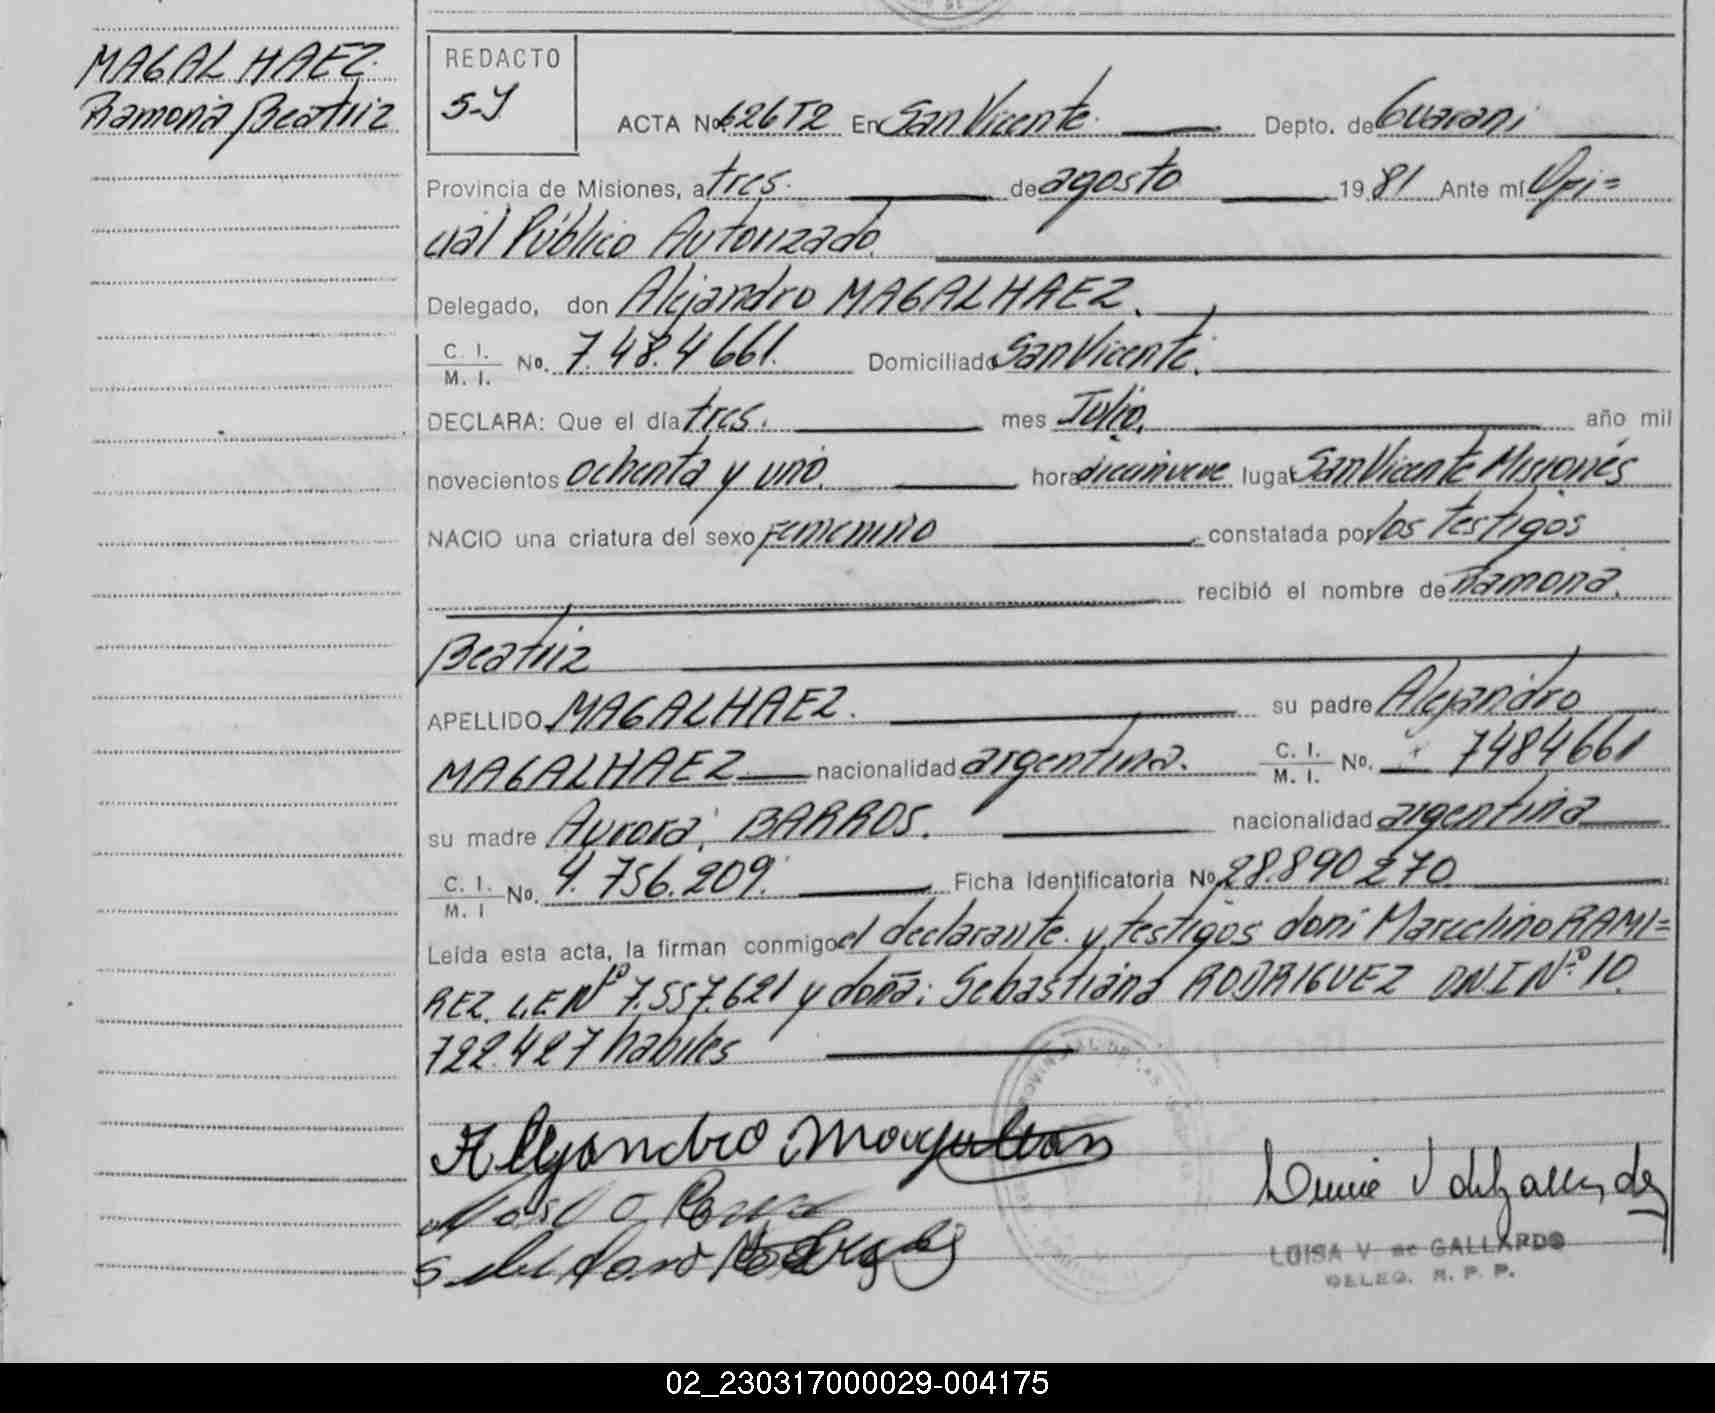 MAGALHAEZ
Ramona Beatriz
REDACTO
S-J
ACTA No. 626 T2 En San Vicente. Depto. de Guarani
Provincia de Misiones, a tres. de agosto 1981 Ante mí Ofi=
cial Público Autorizado.
Delegado, don Alejandro MAGALHAEZ.
C. I. M. I. No. 7.484661. Domiciliado San Vicente.
DECLARA: Que el día tres. mes Julio. año mil
novecientos ochenta y uno. hora diecinueve lugar San Vicente Misiones
NACIO una criatura del sexo Femenino constatada por los testigos
recibió el nombre de Ramona.
Beatriz
APELLIDO MAGALHAEZ. su padre Alejandro
MAGALHAEZ nacionalidad argentina. C. I. M. I. No. 7484661
su madre Aurora BARROS. nacionalidad argentina
C. I. M. I No. 4.756.209. Ficha Identificatoria No. 28.890270
Leída esta acta, la firman conmigo el declarante y testigos don: Marcelino RAMI=
REZ L.E Nº 7.557.621 y doña: Sebastiana RODRIGUEZ DNI Nº 10.
722.427 habiles
Alejandro
LUISA V. de GALLARDO
DELEG. R. P. P.
02_230317000029-004175